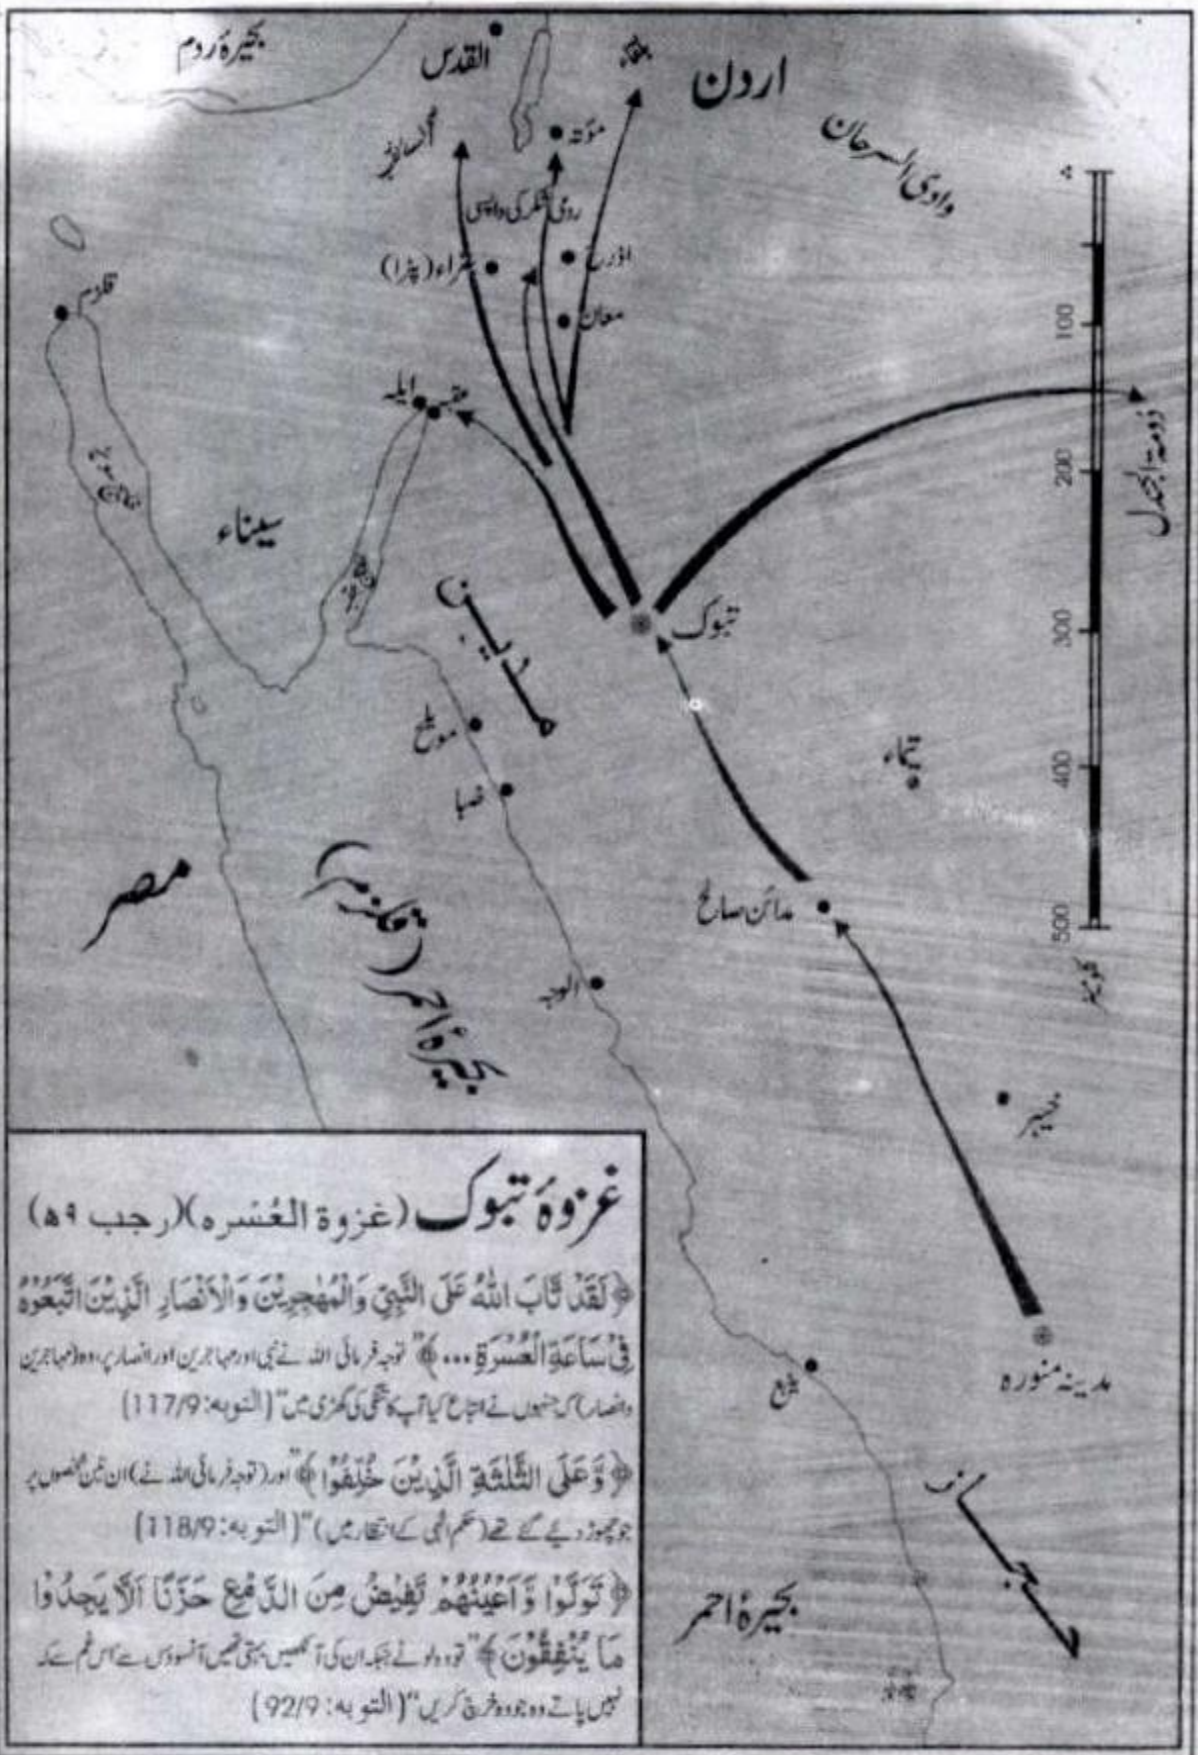 بحیرۂ روم
القدس
بلقاء
اردن
مؤتہ
وادی السرحان
رومی لشکر کی واپسی
بتراء (پٹرا)
اذرح
معان
قلزم
ایلہ
0
100
200
300
400
500
کلومیٹر
دومۃ الجندل
سیناء
خلیج
تبوک
مدین
مویلح
ضبا
تیماء
مصر
بحیرۂ احمر (قلزم)
مدائن صالح
الوجہ
خیبر
مدینہ منورہ
ینبع
بحیرۂ احمر
غزوۂ تبوک (غزوة العُسره) (رجب ۹ھ)
﴿لَقَدْ تَّابَ اللّٰهُ عَلَى النَّبِيِّ وَالْمُهٰجِرِيْنَ وَالْاَنْصَارِ الَّذِيْنَ اتَّبَعُوْهُ
فِيْ سَاعَةِ الْعُسْرَةِ...﴾ "توجہ فرمائی اللہ نے نبی اور مہاجرین اور انصار پر، وہ (مہاجرین
وانصار) کہ جنہوں نے اتباع کیا آپ کا تنگی کی گھڑی میں" (التوبه: 117/9)
﴿وَّعَلَى الثَّلٰثَةِ الَّذِيْنَ خُلِّفُوْا﴾ "اور (توجہ فرمائی اللہ نے) ان تین شخصوں پر
جو چھوڑ دیے گئے تھے (حکم الٰہی کے انتظار میں)" (التوبه: 118/9)
﴿تَوَلَّوْا وَّاَعْيُنُهُمْ تَفِيْضُ مِنَ الدَّمْعِ حَزَنًا اَلَّا يَجِدُوْا
مَا يُنْفِقُوْنَ﴾ "تو وہ لوٹے جبکہ ان کی آنکھیں بہتی تھیں آنسوؤں سے اس غم سے کہ
نہیں پاتے وہ جو وہ خرچ کریں" (التوبه: 92/9)